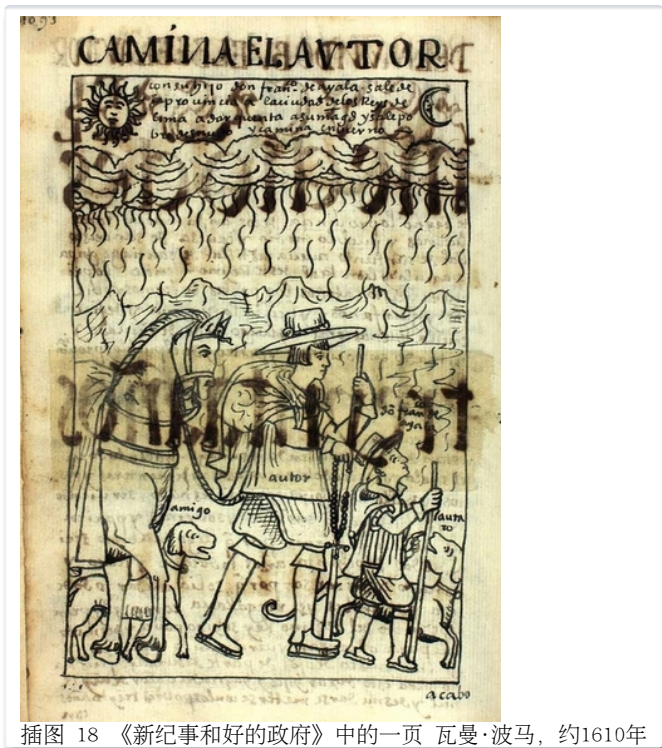 1093
CAMÍNA EL AVTOR
con su hijo don franco. de ayala sale de
la prouincia a la ciudad de los Reys de
lima a dar quenta a su magd y sale po
bre desnudo y camina enbierno
don fran de
aya
autor
amigo
lauta
ro
acabo
插图 18 《新纪事和好的政府》中的一页 瓦曼·波马，约1610年